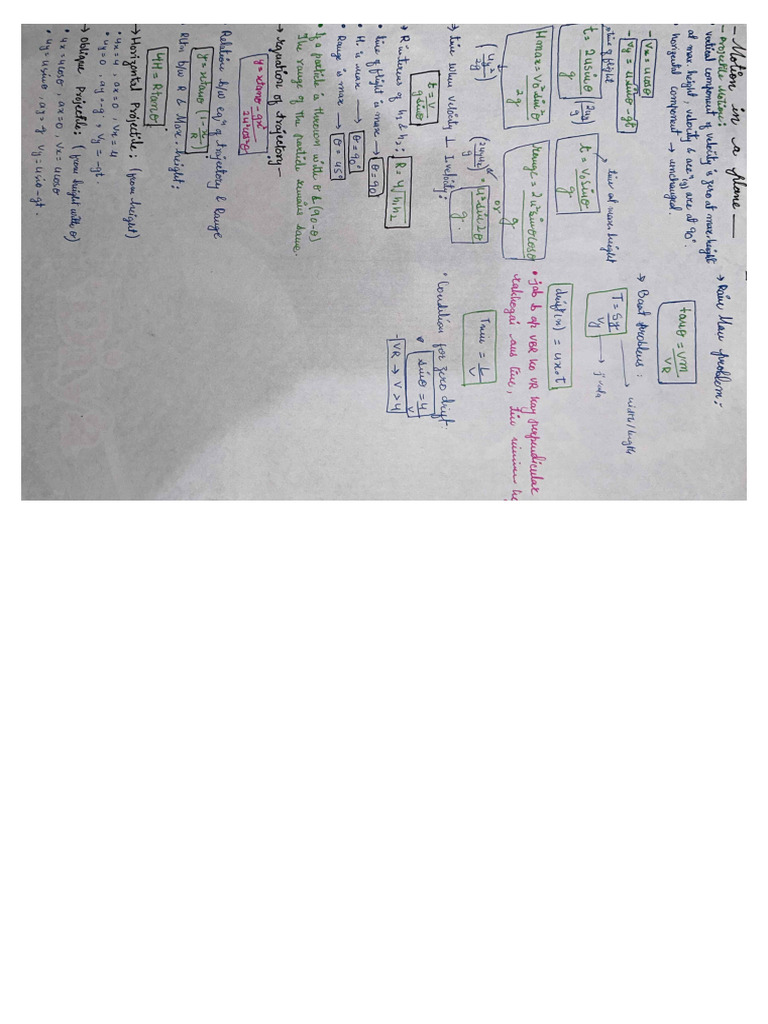 - Motion in a Plane —
- Projectile Motion:
• vertical component of velocity is zero at max. height
• at max. height, velocity & accⁿ (g) are at 90°.
• horizontal component → unchanged.
- Vx = ucosθ
- Vy = usinθ - gt
time of flight
t = 2usinθ/g (2uy/g)
time at max. height
t = v₀sinθ/g
Hmax = v₀²sin²θ/2g
(uy²/2g)
Range = 2u²sinθcosθ/g
or
(2uxuy/g) • u²sin2θ/g.
→ time when velocity ⊥ Ivelocity:
t = v/gsinθ
→ R in terms of h₁ & h₂: R = 4√h₁h₂
• time of flight is max → θ = 90
• H. is max → θ = 90°
• Range is max → θ = 45°
• If a particle is thrown with θ & (90-θ)
The range of the particle remains same.
→ equation of trajectory —
y = xtanθ - gx²/2u²cos²θ
• Relation b/w eqⁿ of trajectory & Range
y = xtanθ (1 - x/R)
• Rltn b/w R & Max. height;
4H = Rtanθ
→ Horizontal Projectile; (from height)
• ux = u, ax = 0, Vx = u
• uy = 0, ay = -g, Vy = -gt.
→ Oblique Projectile; (from height with θ)
• ux = ucosθ, ax = 0, Vx = ucosθ
• uy = usinθ, ay = -g Vy = usinθ - gt.
→ Rain Man problem:
tanθ = Vm/VR
→ Boat problems:
T = Sy/Vy
→ width/length
drift(x) = ux.t
• jab b ap VBR ko VR kay perpendicular
rakhogai, aus time, time minimum
Tmin = L/V
• Condition for zero drift:
• sinθ = u/v
- VR → V > u